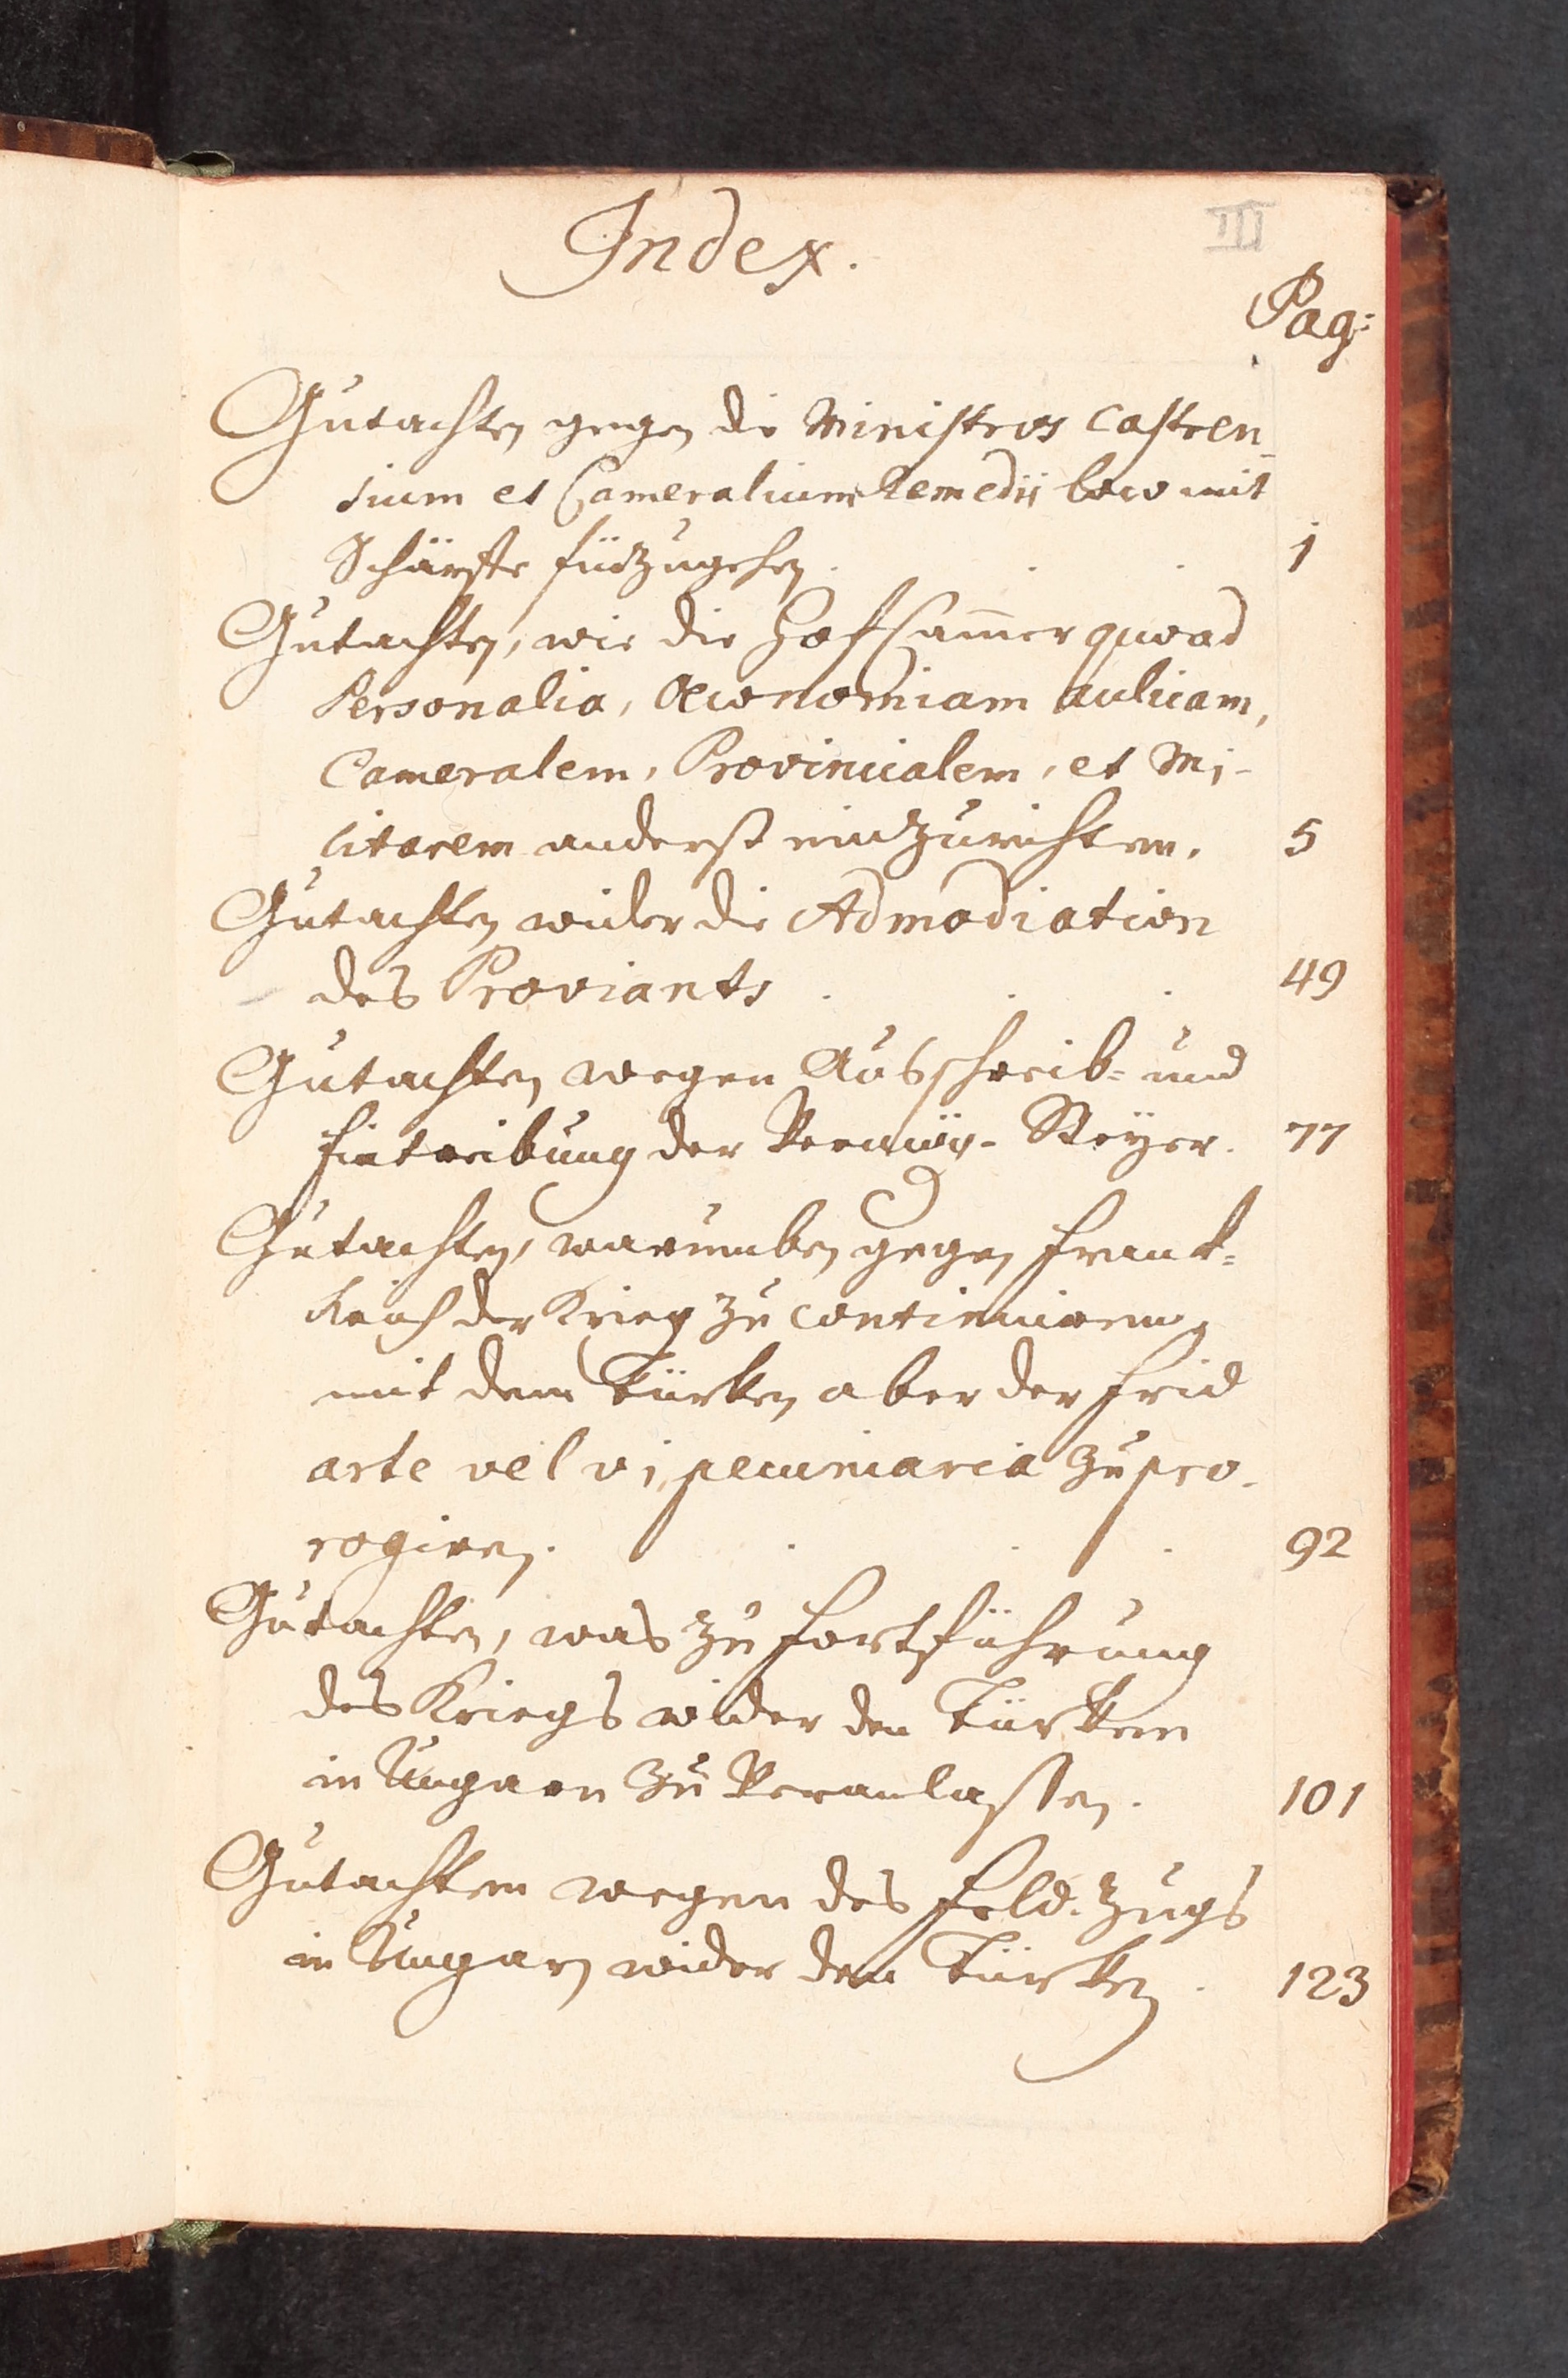 Index.
III
Pag:
Gutachten gegen die Ministros Castren-
sium et Cameralium Remedii loco mit
Schärffe fürzugehen. 1
Gutachten, wie die Hof Cam̄er quoad
Personalia, Oeconomiam aulicam,
Cameralem, Provincialem, et Mi-
litarem anderst einzurichten. 5
Gutachten wider die Admodiation
des Proviants 49
Gutachten wegen Ausschreib- und
Eintreibung der Vermög- Steyer. 77
Gutachten, warumben gegen Franck-
Reich der Krieg zu continuiren,
mit dem Türken aber der Frid
arte vel vi pecuniaria zu pro-
rogiren. 92
Gutachten, was zu Fortführung
des Kriegs wider den Türken
in Ungarn zu veranlassen. 101
Gutachten wegen des Feld-Zugs
in Ungarn wider den Türken. 123